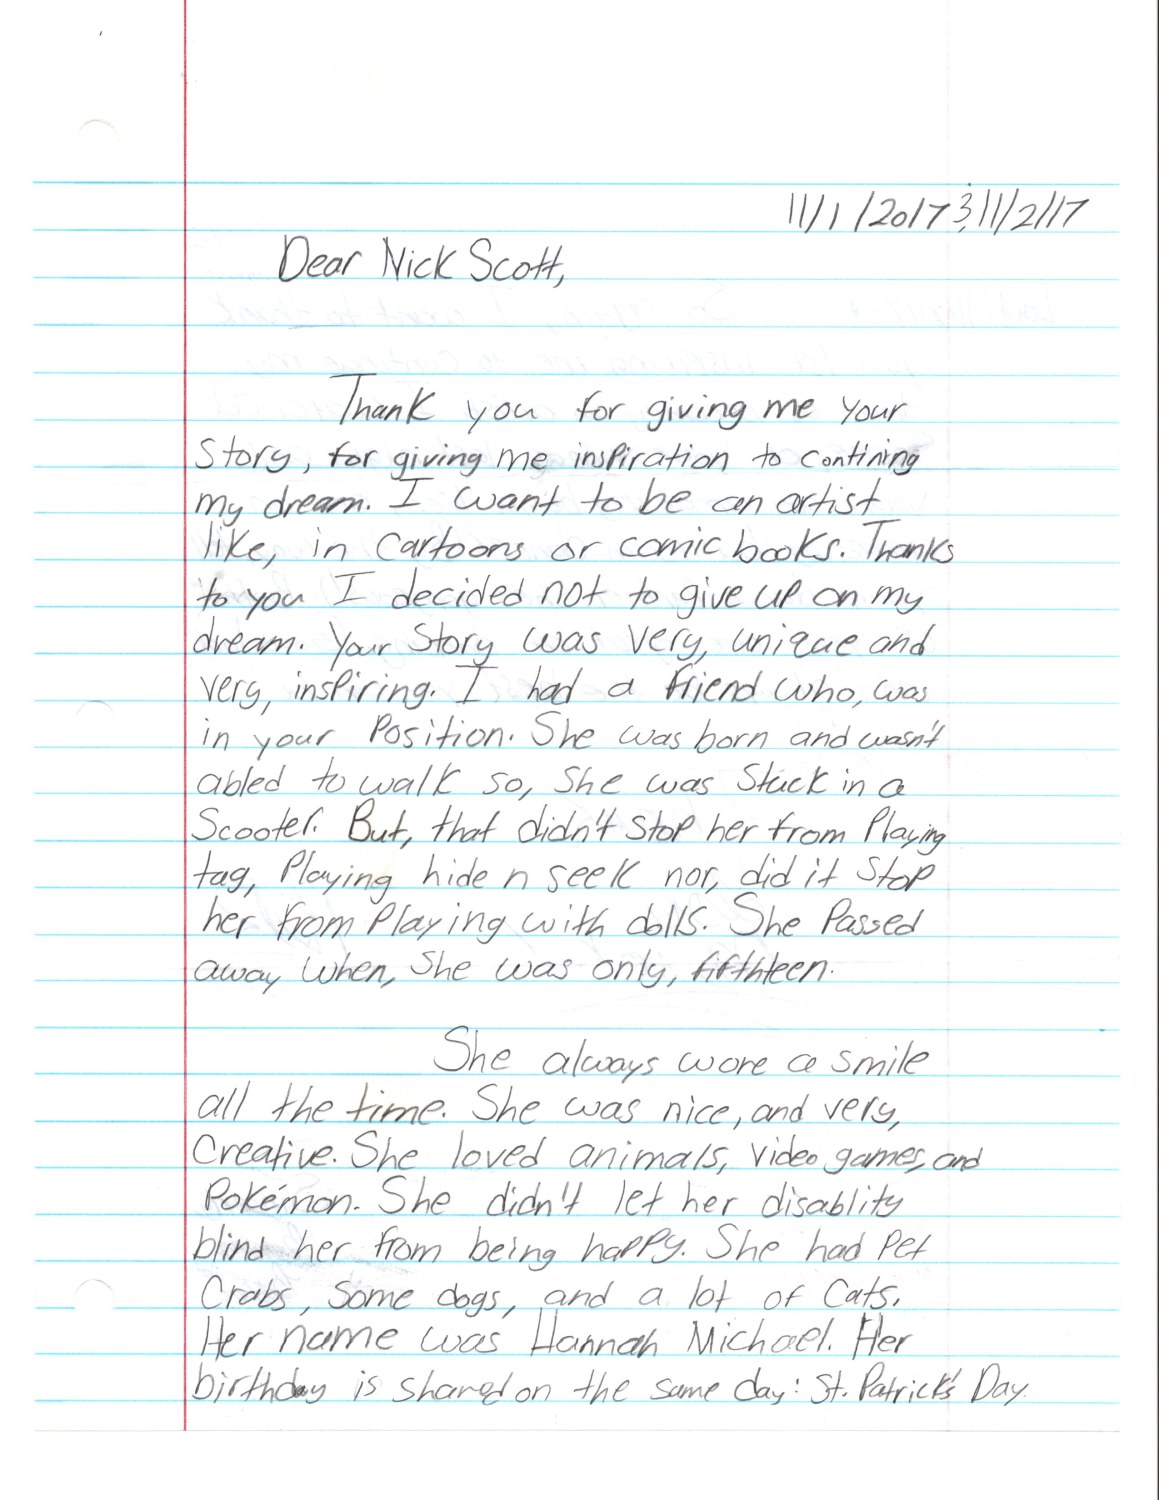 11/1/2017 & 11/2/17
Dear Nick Scott,
Thank you for giving me your
Story, for giving me inspiration to contining
my dream. I want to be an artist
like, in cartoons or comic books. Thanks
to you I decided not to give up on my
dream. Your Story was very, unique and
very, inspiring. I had a friend who, was
in your Position. She was born and wasn't
abled to walk so, She was Stuck in a
Scooter. But, that didn't stop her from Playing
tag, Playing hide n seek nor, did it Stop
her from Playing with dolls. She Passed
away when, She was only, fifthteen.
She always wore a smile
all the time. She was nice, and very,
Creative. She loved animals, video games, and
Pokémon. She didn't let her disablity
blind her from being happy. She had Pet
Crabs, Some dogs, and a lot of Cats.
Her name was Hannah Michael. Her
birthday is shared on the same day: St. Patrick's Day.